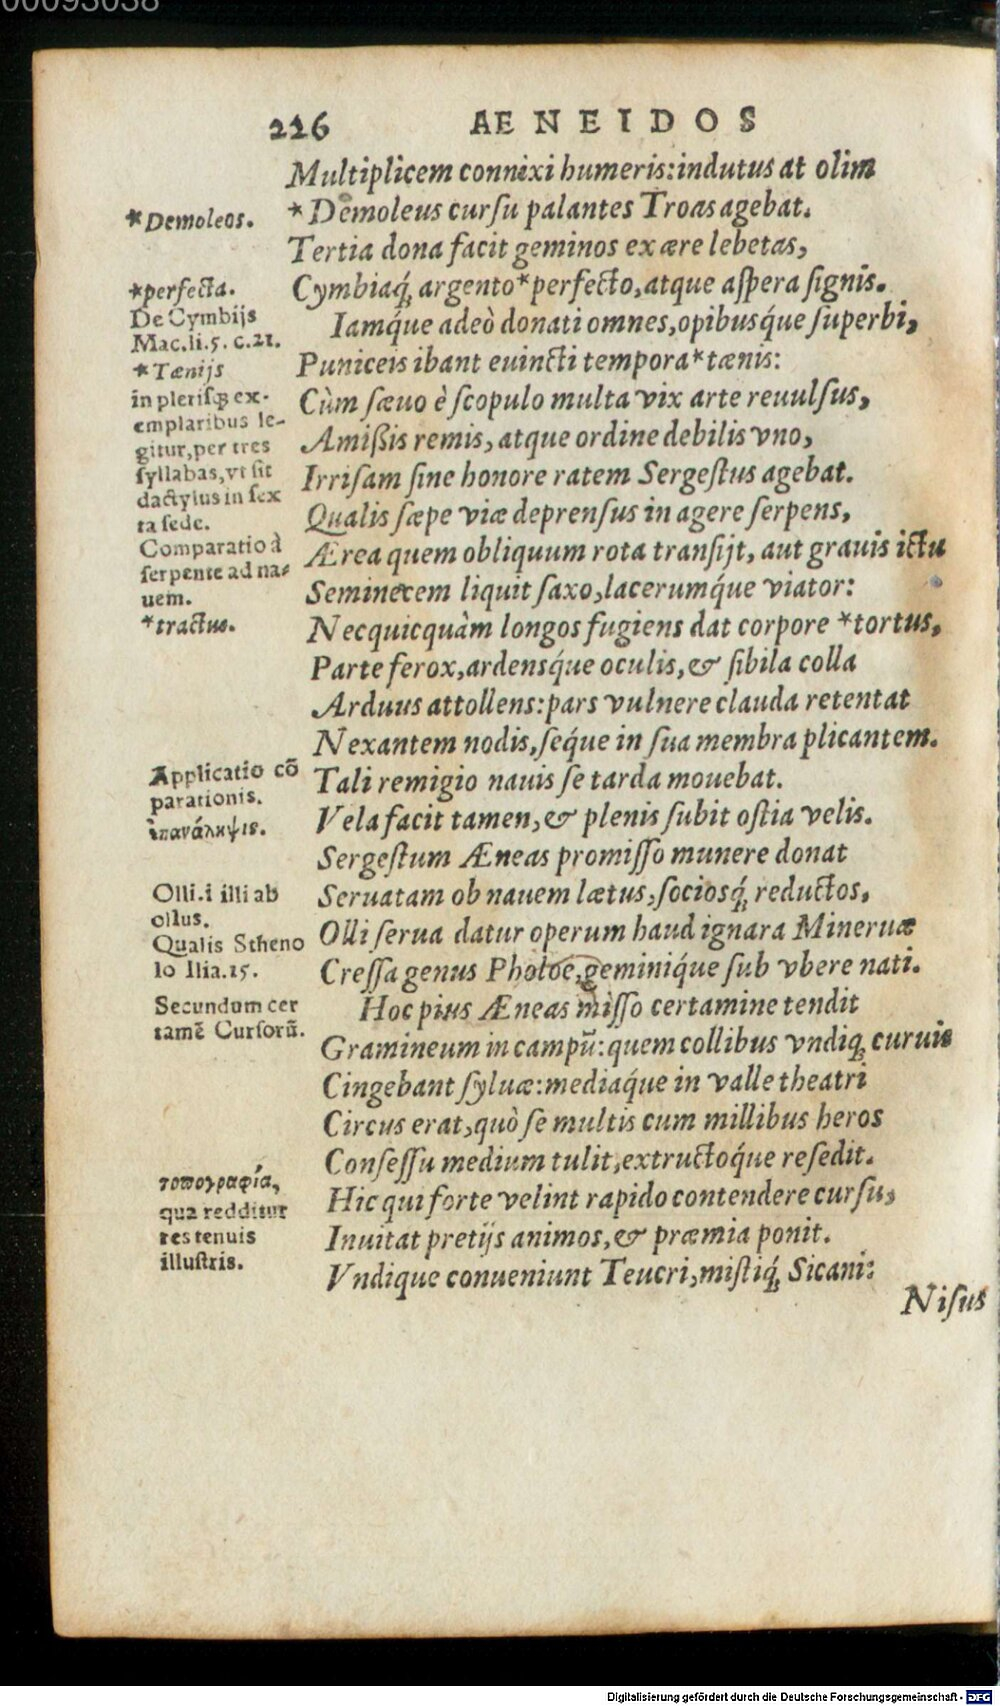 00093038
226 AENEIDOS
Multiplicem connixi humeris:indutus at olim
*Demoleus cursu palantes Troas agebat.
Tertia dona facit geminos ex ære lebetas,
Cymbiaq́ꝫ argento*perfecto,atque aspera signis.
Iamq́ue adeò donati omnes,opibusq́ue superbi,
Puniceis ibant euincti tempora*tænis:
Cùm sæuo è scopulo multa vix arte reuulsus,
Amißis remis, atque ordine debilis vno,
Irrisam sine honore ratem Sergestus agebat.
Qualis sæpe viæ deprensus in agere serpens,
Ærea quem obliquum rota transijt, aut grauis ictu
Seminecem liquit saxo,lacerumq́ue viator:
Necquicquàm longos fugiens dat corpore *tortus,
Parte ferox,ardensq́ue oculis,& sibila colla
Arduus attollens:pars vulnere clauda retentat
Nexantem nodis,seq́ue in sua membra plicantem.
Tali remigio nauis se tarda mouebat.
Vela facit tamen,& plenis subit ostia velis.
Sergestum Æneas promisso munere donat
Seruatam ob nauem lætus,sociosq́ꝫ reductos,
Olli serua datur operum haud ignara Mineruæ
Cressa genus Pholoe,geminiq́ue sub vbere nati.
Hoc pius Æneas misso certamine tendit
Gramineum in campũ:quem collibus vndiqꝫ curuis
Cingebant syluæ:mediaq́ue in valle theatri
Circus erat,quò se multis cum millibus heros
Consessu medium tulit,extructoq́ue resedit.
Hic qui forte velint rapido contendere cursu,
Inuitat pretijs animos,& præmia ponit.
Vndique conueniunt Teucri,mistiq́ꝫ Sicani:
Nisus
*Demoleos.
*perfecta.
De Cymbijs
Mac.li.5. c.21.
*Tænijs
in plerisqꝫ ex-
emplaribus le-
gitur,per tres
syllabas,vt sit
dactylus in sex
ta sede.
Comparatio à
serpente ad na-
uem.
*tractus.
Applicatio cõ
parationis.
ἐπανάληψις.
Olli.i illi ab
ollus.
Qualis Stheno
lo Ilia.15.
Secundum cer
tamẽ Cursorũ.
τοπογραφία,
qua redditur
res tenuis
illustris.
Digitalisierung gefördert durch die Deutsche Forschungsgemeinschaft - DFG